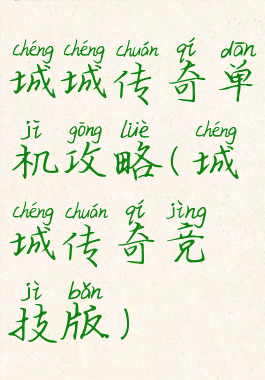 chéng chéng chuán qí dān
城城传奇单
jī gōng lüè chéng
机攻略(城
chéng chuán qí jìng
城传奇竞
jì bǎn
技版)